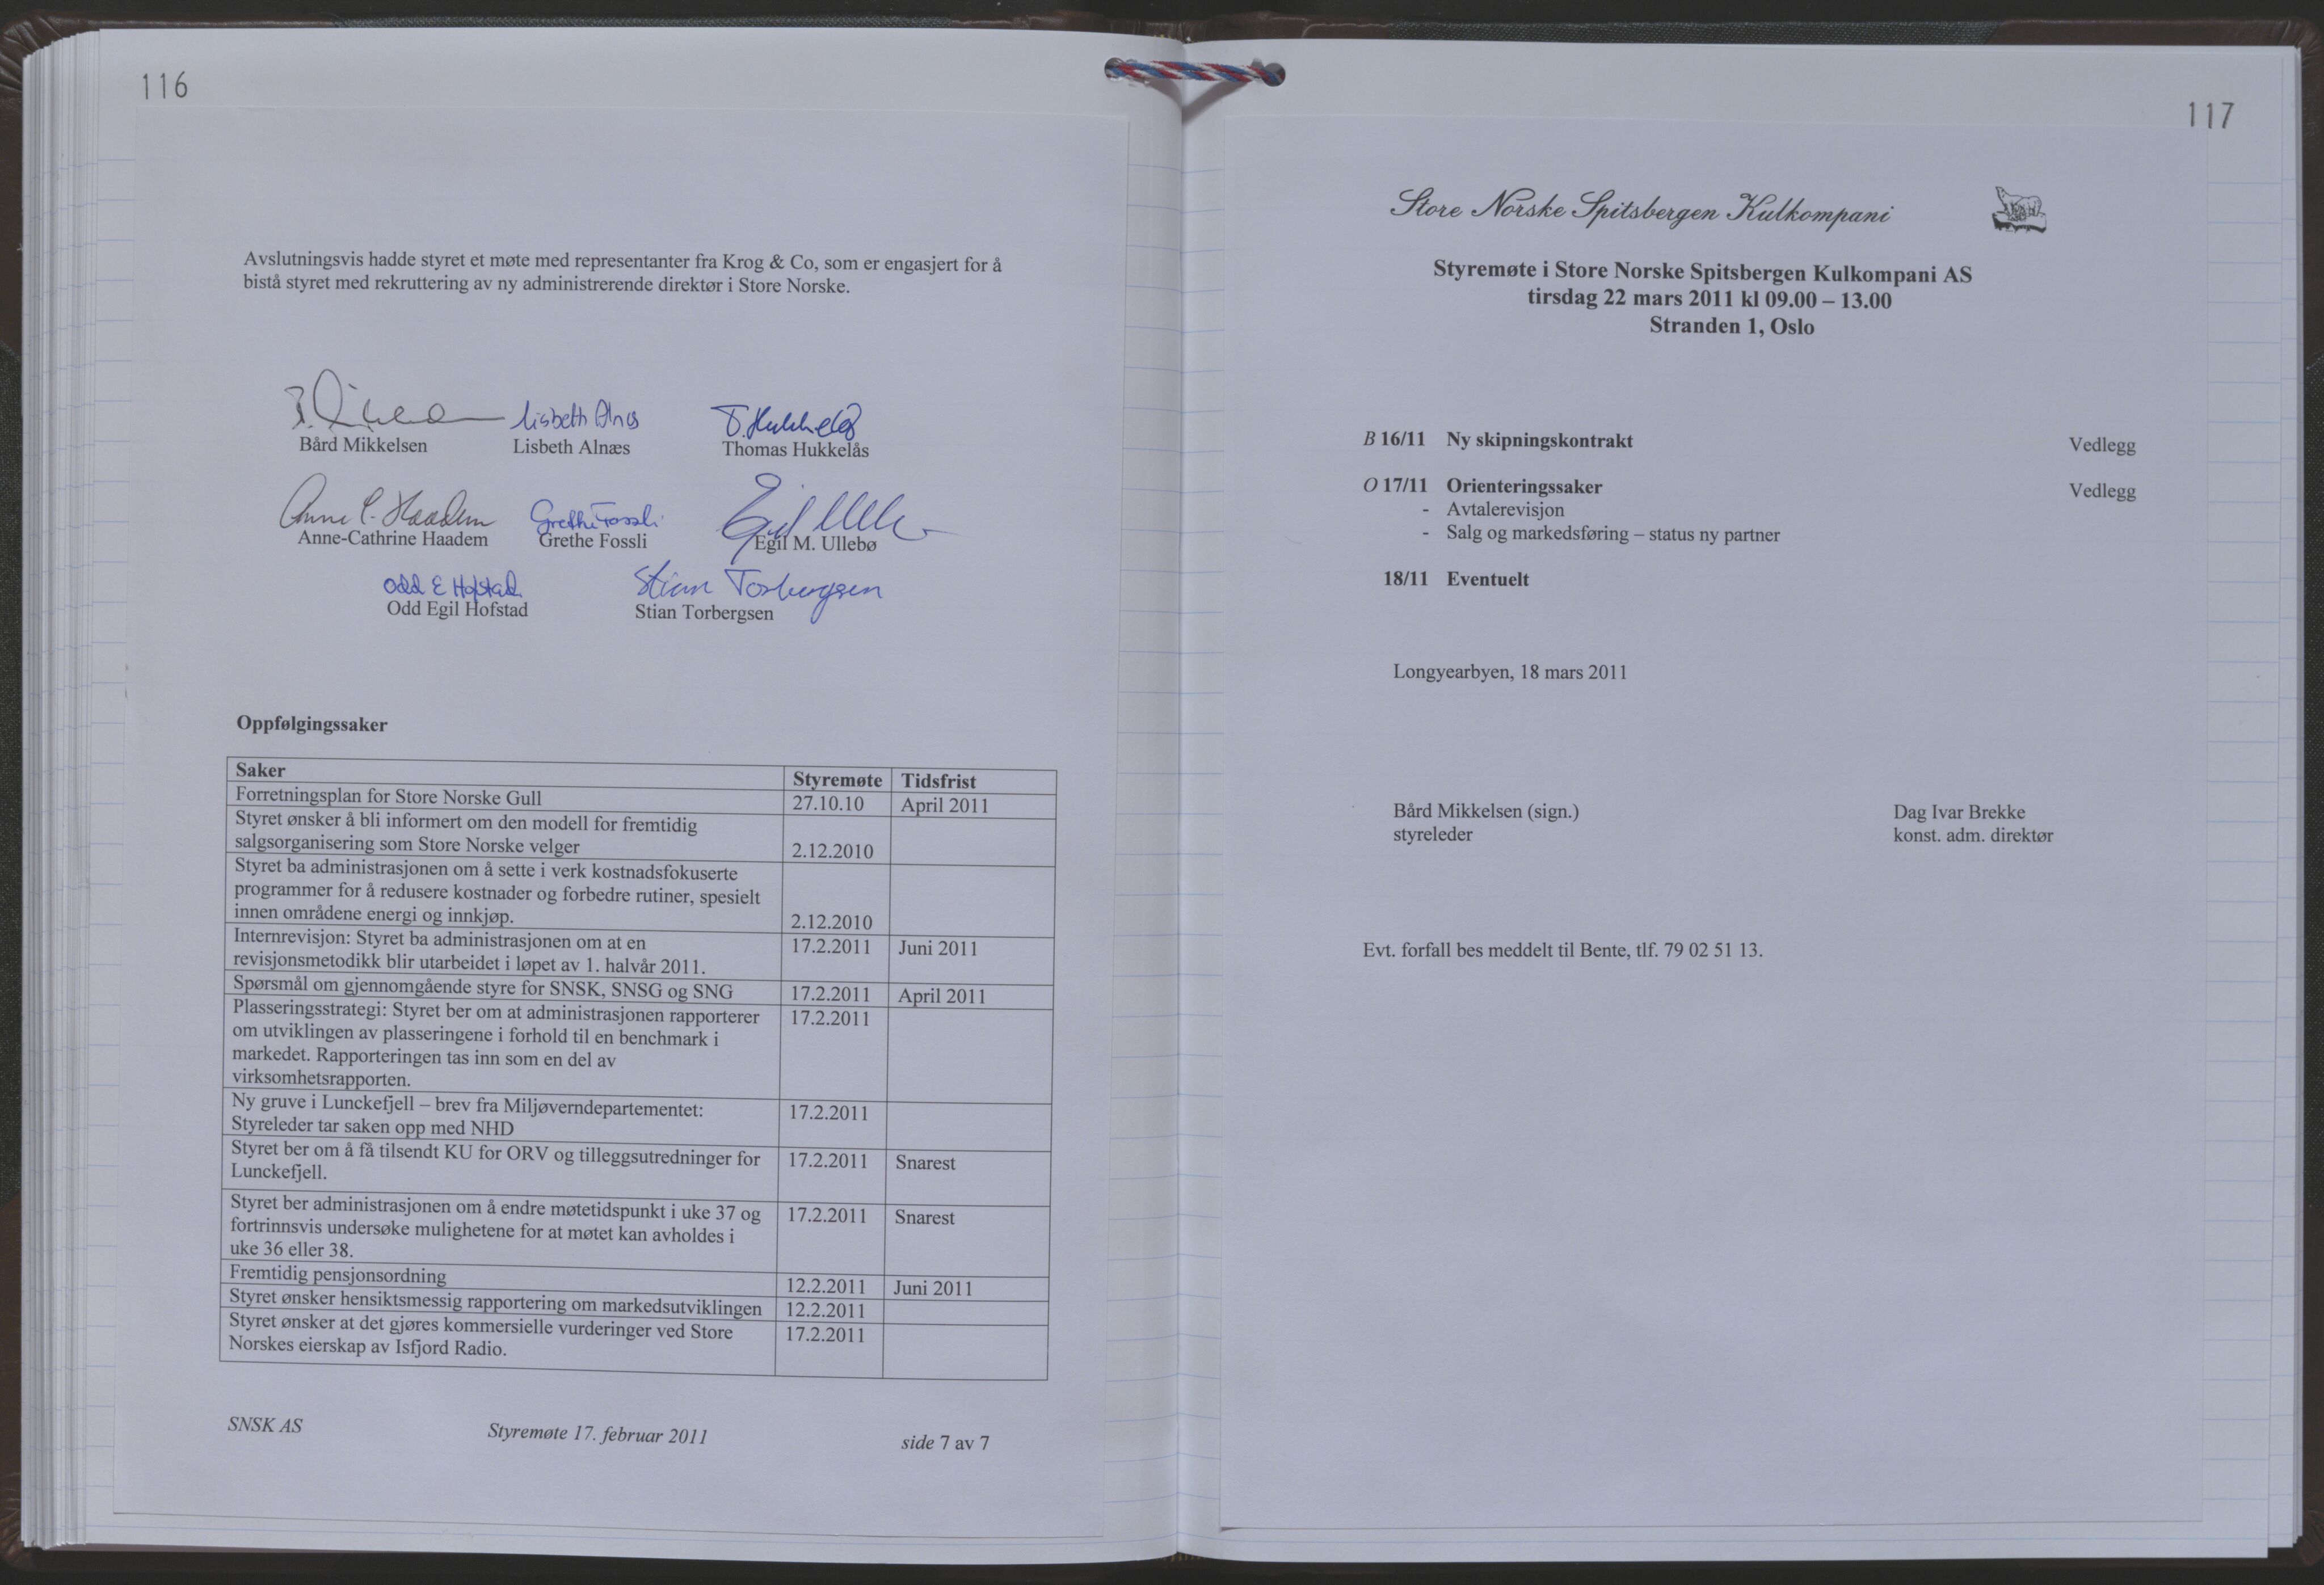 116
Avslutningsvis hadde styret et møte med representanter fra Krog & Co, som er engasjert for å
bistå styret med rekruttering av ny administrerende direktør i Store Norske.
Lisbeth Alnæs
T. Hukkelås
Bård Mikkelsen
Lisbeth Alnæs
Thomas Hukkelås
Anne C. Haadem
Grethe Fossli
Anne-Cathrine Haadem
Grethe Fossli
Egil M. Ullebø
Odd E Hofstad
Stian Torbergsen
Odd Egil Hofstad
Stian Torbergsen
Oppfølgingssaker
Saker Styremøte Tidsfrist
Forretningsplan for Store Norske Gull 27.10.10 April 2011
Styret ønsker å bli informert om den modell for fremtidig
salgsorganisering som Store Norske velger 2.12.2010
Styret ba administrasjonen om å sette i verk kostnadsfokuserte
programmer for å redusere kostnader og forbedre rutiner, spesielt
innen områdene energi og innkjøp. 2.12.2010
Internrevisjon: Styret ba administrasjonen om at en 17.2.2011 Juni 2011
revisjonsmetodikk blir utarbeidet i løpet av 1. halvår 2011.
Spørsmål om gjennomgående styre for SNSK, SNSG og SNG 17.2.2011 April 2011
Plasseringsstrategi: Styret ber om at administrasjonen rapporterer 17.2.2011
om utviklingen av plasseringene i forhold til en benchmark i
markedet. Rapporteringen tas inn som en del av
virksomhetsrapporten.
Ny gruve i Lunckefjell – brev fra Miljøverndepartementet: 17.2.2011
Styreleder tar saken opp med NHD
Styret ber om å få tilsendt KU for ORV og tilleggsutredninger for 17.2.2011 Snarest
Lunckefjell.
Styret ber administrasjonen om å endre møtetidspunkt i uke 37 og 17.2.2011 Snarest
fortrinnsvis undersøke mulighetene for at møtet kan avholdes i
uke 36 eller 38.
Fremtidig pensjonsordning 12.2.2011 Juni 2011
Styret ønsker hensiktsmessig rapportering om markedsutviklingen 12.2.2011
Styret ønsker at det gjøres kommersielle vurderinger ved Store 17.2.2011
Norskes eierskap av Isfjord Radio.
SNSK AS Styremøte 17. februar 2011 side 7 av 7
117
Store Norske Spitsbergen Kulkompani
Styremøte i Store Norske Spitsbergen Kulkompani AS
tirsdag 22 mars 2011 kl 09.00 – 13.00
Stranden 1, Oslo
B 16/11 Ny skipningskontrakt Vedlegg
O 17/11 Orienteringssaker Vedlegg
- Avtalerevisjon
- Salg og markedsføring – status ny partner
18/11 Eventuelt
Longyearbyen, 18 mars 2011
Bård Mikkelsen (sign.) Dag Ivar Brekke
styreleder konst. adm. direktør
Evt. forfall bes meddelt til Bente, tlf. 79 02 51 13.